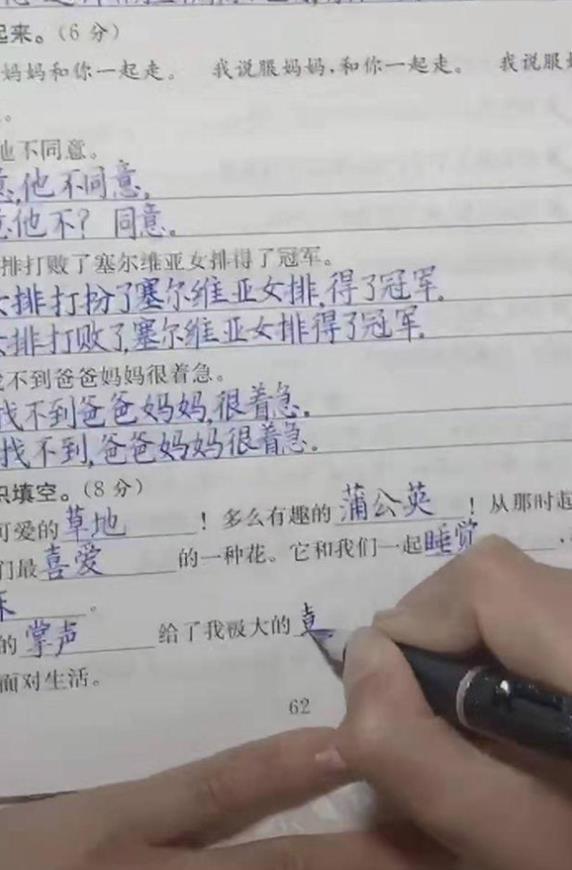 起来。(6分)
妈妈和你一起走。 我说服妈妈,和你一起走。 我说服
。
他不同意。
意,他不同意,
意:他不? 同意。
排打败了塞尔维亚女排得了冠军。
女排打扮了塞尔维亚女排,得了冠军.
女排打败了,塞尔维亚女排得了冠军.
找不到爸爸妈妈很着急。
找不到爸爸妈妈,很着急.
找不到,爸爸妈妈很着急.
识填空。(8分)
可爱的草地!多么有趣的蒲公英!从那时起
们最喜爱的一种花。它和我们一起睡觉,
。
的掌声给了我极大的
面对生活。
62